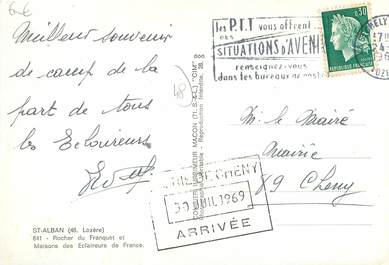 6€
les P.T.T vous offrent
des
SITUATIONS D'AVENIR
renseignez-vous
dans les bureaux de poste
0,30
Meilleur souvenir
de camp de la
part de tous
les Eclaireurs
48
M. le Maire
Mairie
89 Cheny
CHENY
30 JUIL 1969
ARRIVÉE
COMBIER IMPRIMEUR MACON (71, S.-&-L.) "CIM"
Reproduction Interdite.
ST-ALBAN (48. Lozère)
641 - Rocher du Franquet et
Maisons des Eclaireurs de France.